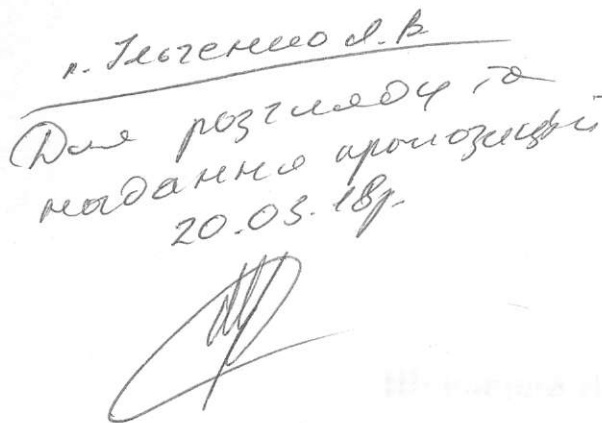 п. Ільченко Я.В
Для розгляду та
надання пропозицій
20.03.18р.